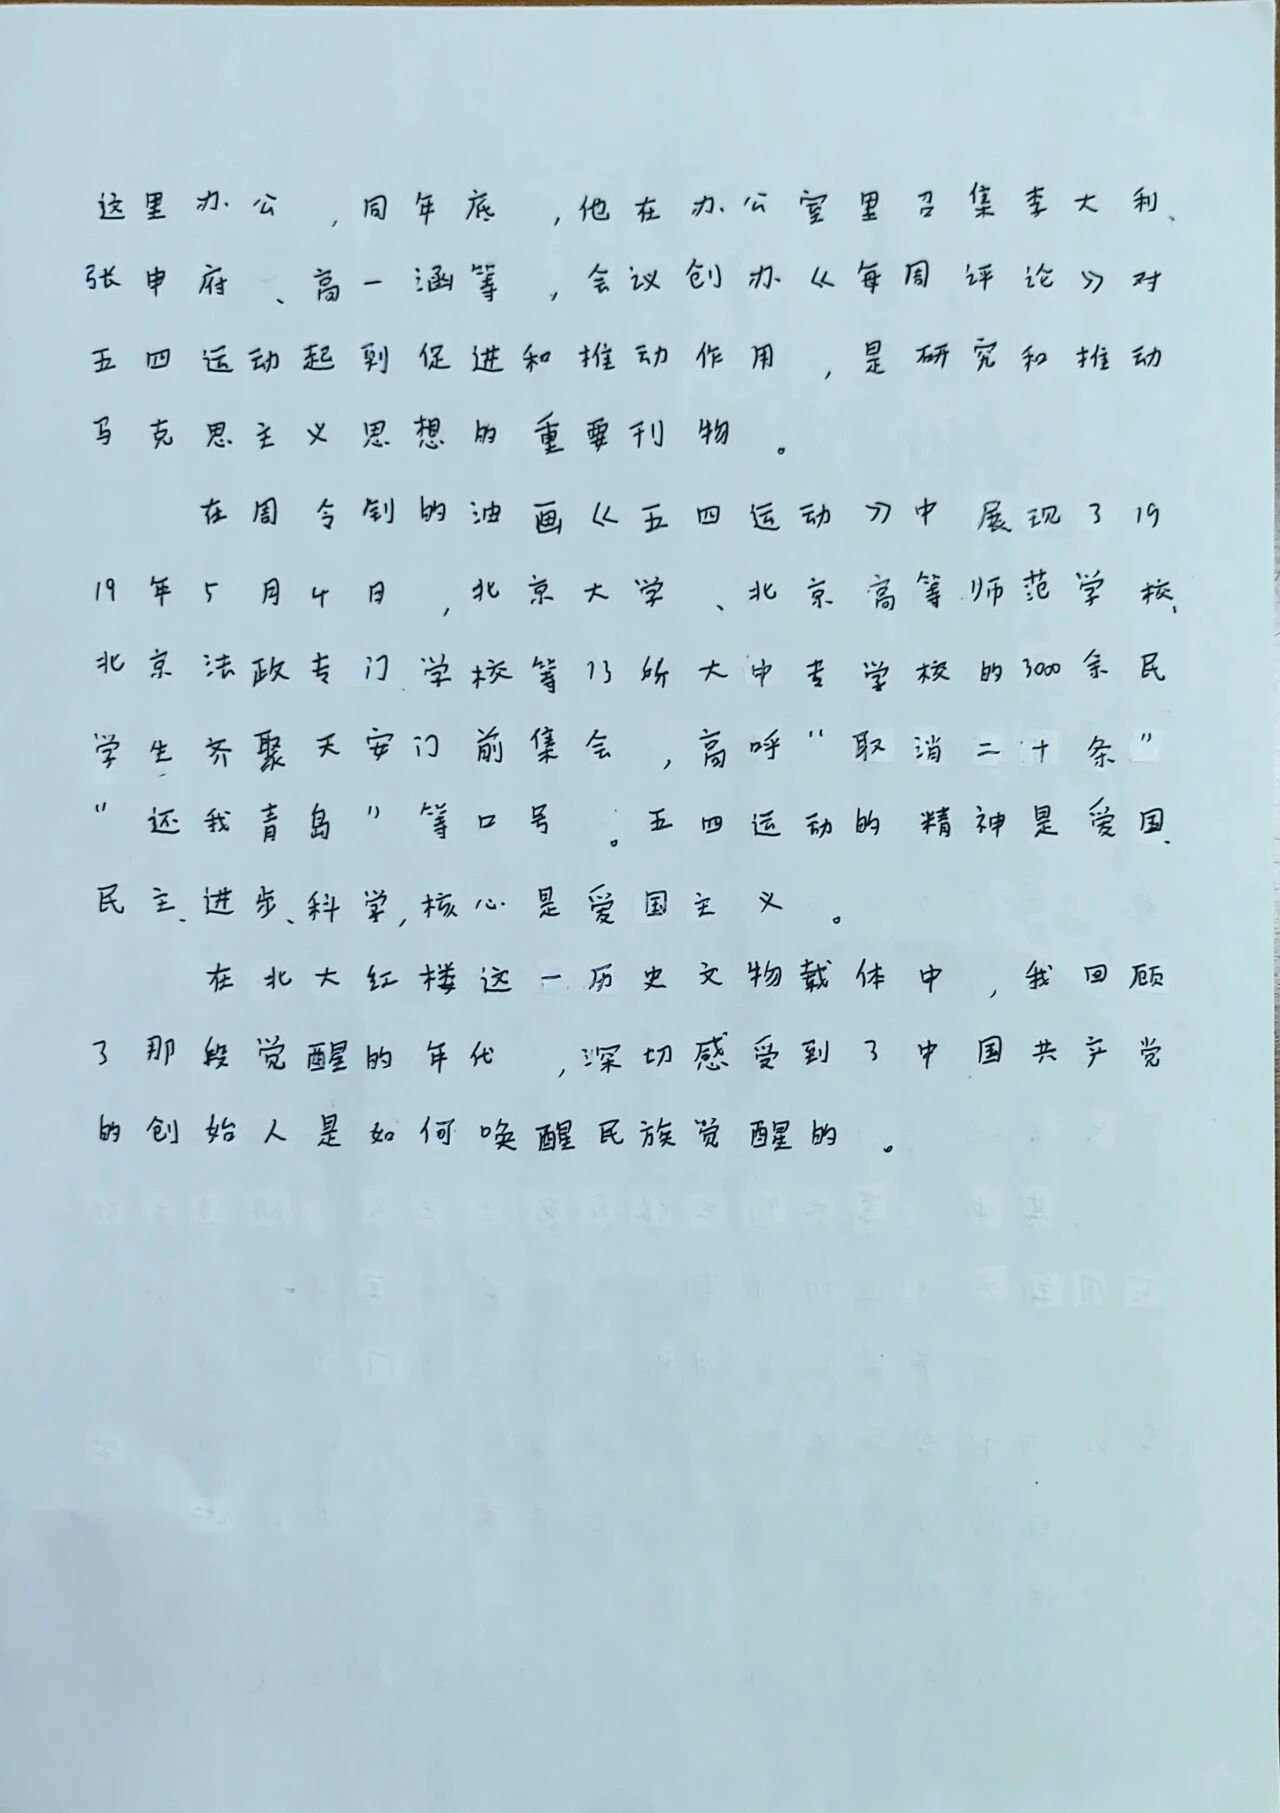 这里办公，同年底，他在办公室里召集李大利、
张申府、高一涵等，会议创办《每周评论》对
五四运动起到促进和推动作用，是研究和推动
马克思主义思想的重要刊物。
在周令钊的油画《五四运动》中展现了19
19年5月4日，北京大学、北京高等师范学校、
北京法政专门学校等13所大中专学校的3000余民
学生齐聚天安门前集会，高呼“取消二十条”
“还我青岛”等口号。五四运动的精神是爱国、
民主、进步、科学，核心是爱国主义。
在北大红楼这一历史文物载体中，我回顾
了那段觉醒的年代，深切感受到了中国共产党
的创始人是如何唤醒民族觉醒的。